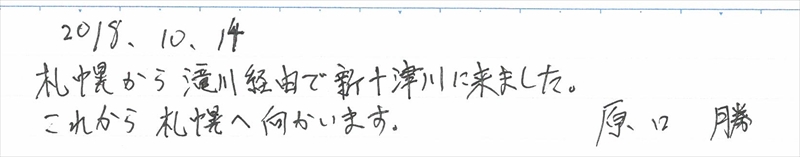 2018、10、14
札幌から滝川経由で新十津川に来ました。
これから札幌へ向かいます。 原口 勝